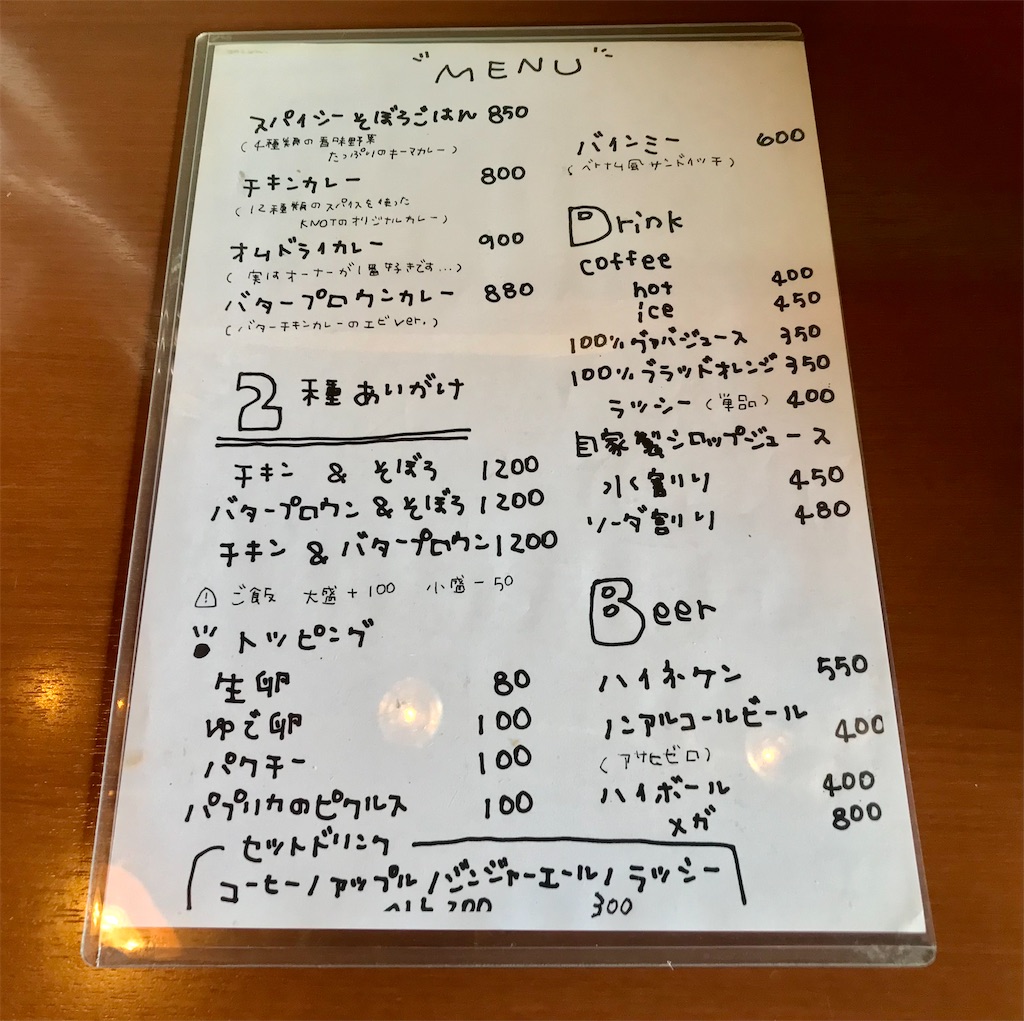 MENU
スパイシーそぼろごはん 850
(4種類の香味野菜
たっぷりのキーマカレー)
チキンカレー 800
(12種類のスパイスを使った
KNOTのオリジナルカレー)
オムドライカレー 900
(実はオーナーが1番好きです...)
バタープロウンカレー 880
(バターチキンカレーのエビver.)
2種あいがけ
チキン & そぼろ 1200
バタープロウン & そぼろ 1200
チキン & バタープロウン 1200
ご飯 大盛+100 小盛-50
トッピング
生卵 80
ゆで卵 100
パクチー 100
パプリカのピクルス 100
セットドリンク
コーヒー/アップル/ジンジャーエール/ラッシー
200 300
バインミー 600
(ベトナム風サンドイッチ)
Drink
coffee
hot 400
ice 450
100%グァバジュース 350
100%ブラッドオレンジ 350
ラッシー(単品) 400
自家製シロップジュース
水割り 450
ソーダ割り 480
Beer
ハイネケン 550
ノンアルコールビール 400
(アサヒゼロ)
ハイボール 400
メガ 800